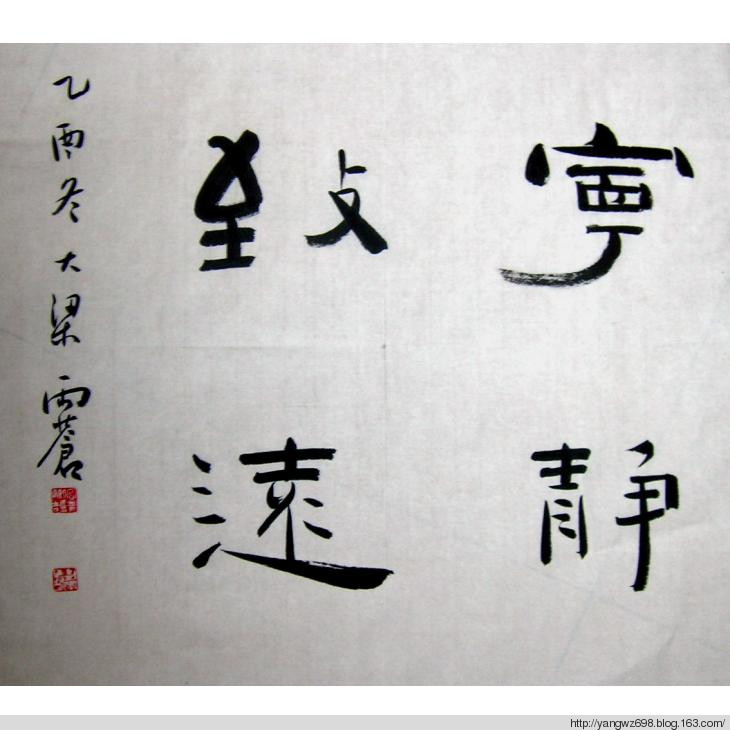 寧靜
致遠
乙酉冬大梁雨蒼
http://yangwz698.blog.163.com/